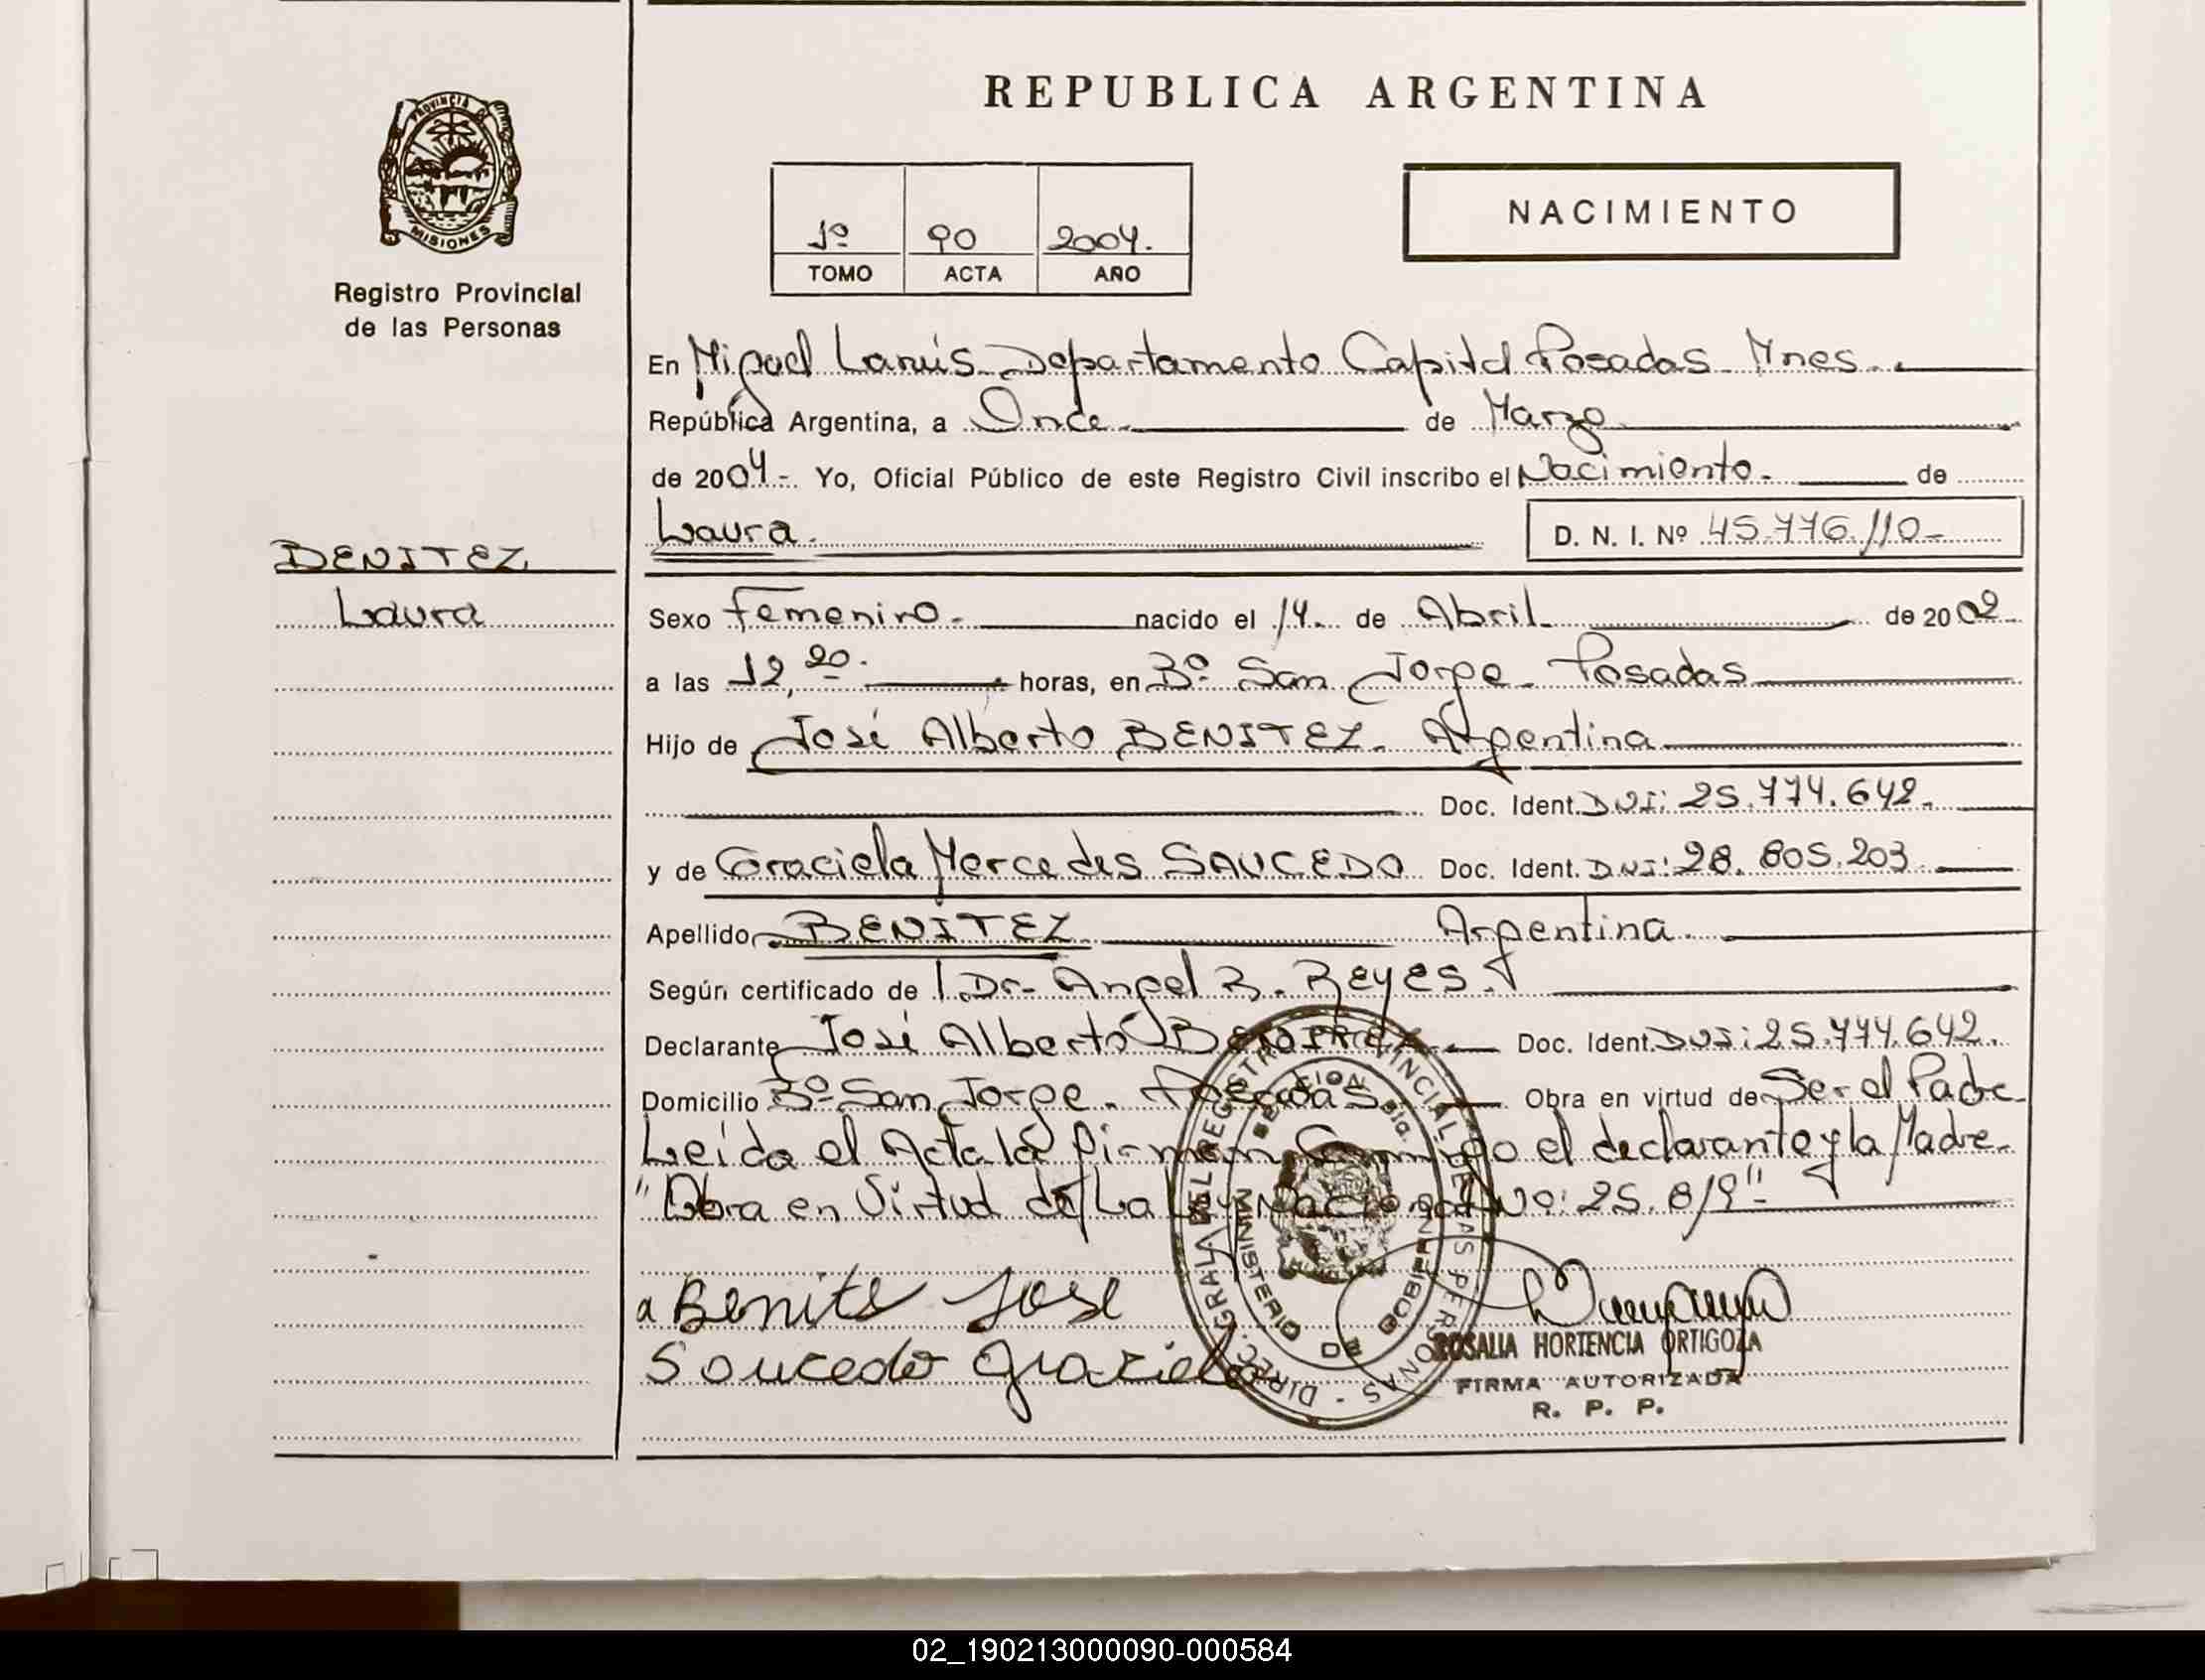 REPUBLICA ARGENTINA
PROVINCIA DE
MISIONES
Registro Provincial
de las Personas
1º 90 2004.
TOMO ACTA AÑO
NACIMIENTO
En Miguel Lanús. Departamento Capital Posadas Mnes.
República Argentina, a Once de Marzo
de 2004 - Yo, Oficial Público de este Registro Civil inscribo el Nacimiento. de
Laura. D. N. I. Nº 45.776.110-
BENITEZ
Laura
Sexo Femenino. nacido el 14 de Abril de 2002
a las 12,20. horas, en Bº San Jorge - Posadas
Hijo de José Alberto BENITEZ. Argentina
Doc. Ident. DNI: 25.774.642.
y de Graciela Mercedes SAUCEDO Doc. Ident. DNI: 28.805.203
Apellido BENITEZ Argentina.
Según certificado de Dr. Angel B. Reyes.
Declarante José Alberto BENITEZ Doc. Ident. DNI: 25.774.642.
Domicilio Bº San Jorge. Posadas Obra en virtud de Ser el Padre
Leída el Acta la firman Conmigo el declarante y la Madre.
"Obra en Virtud de La Ley Nacional Nº: 25.819"-
a Benite Jose
Soucedo Graciela
DIREC. GRAL. DEL REGISTRO PROVINCIAL DE LAS PERSONAS -
MINISTERIO DE GOBIERNO
ROSALIA HORTENCIA ORTIGOZA
FIRMA AUTORIZADA
R. P. P.
02_190213000090-000584